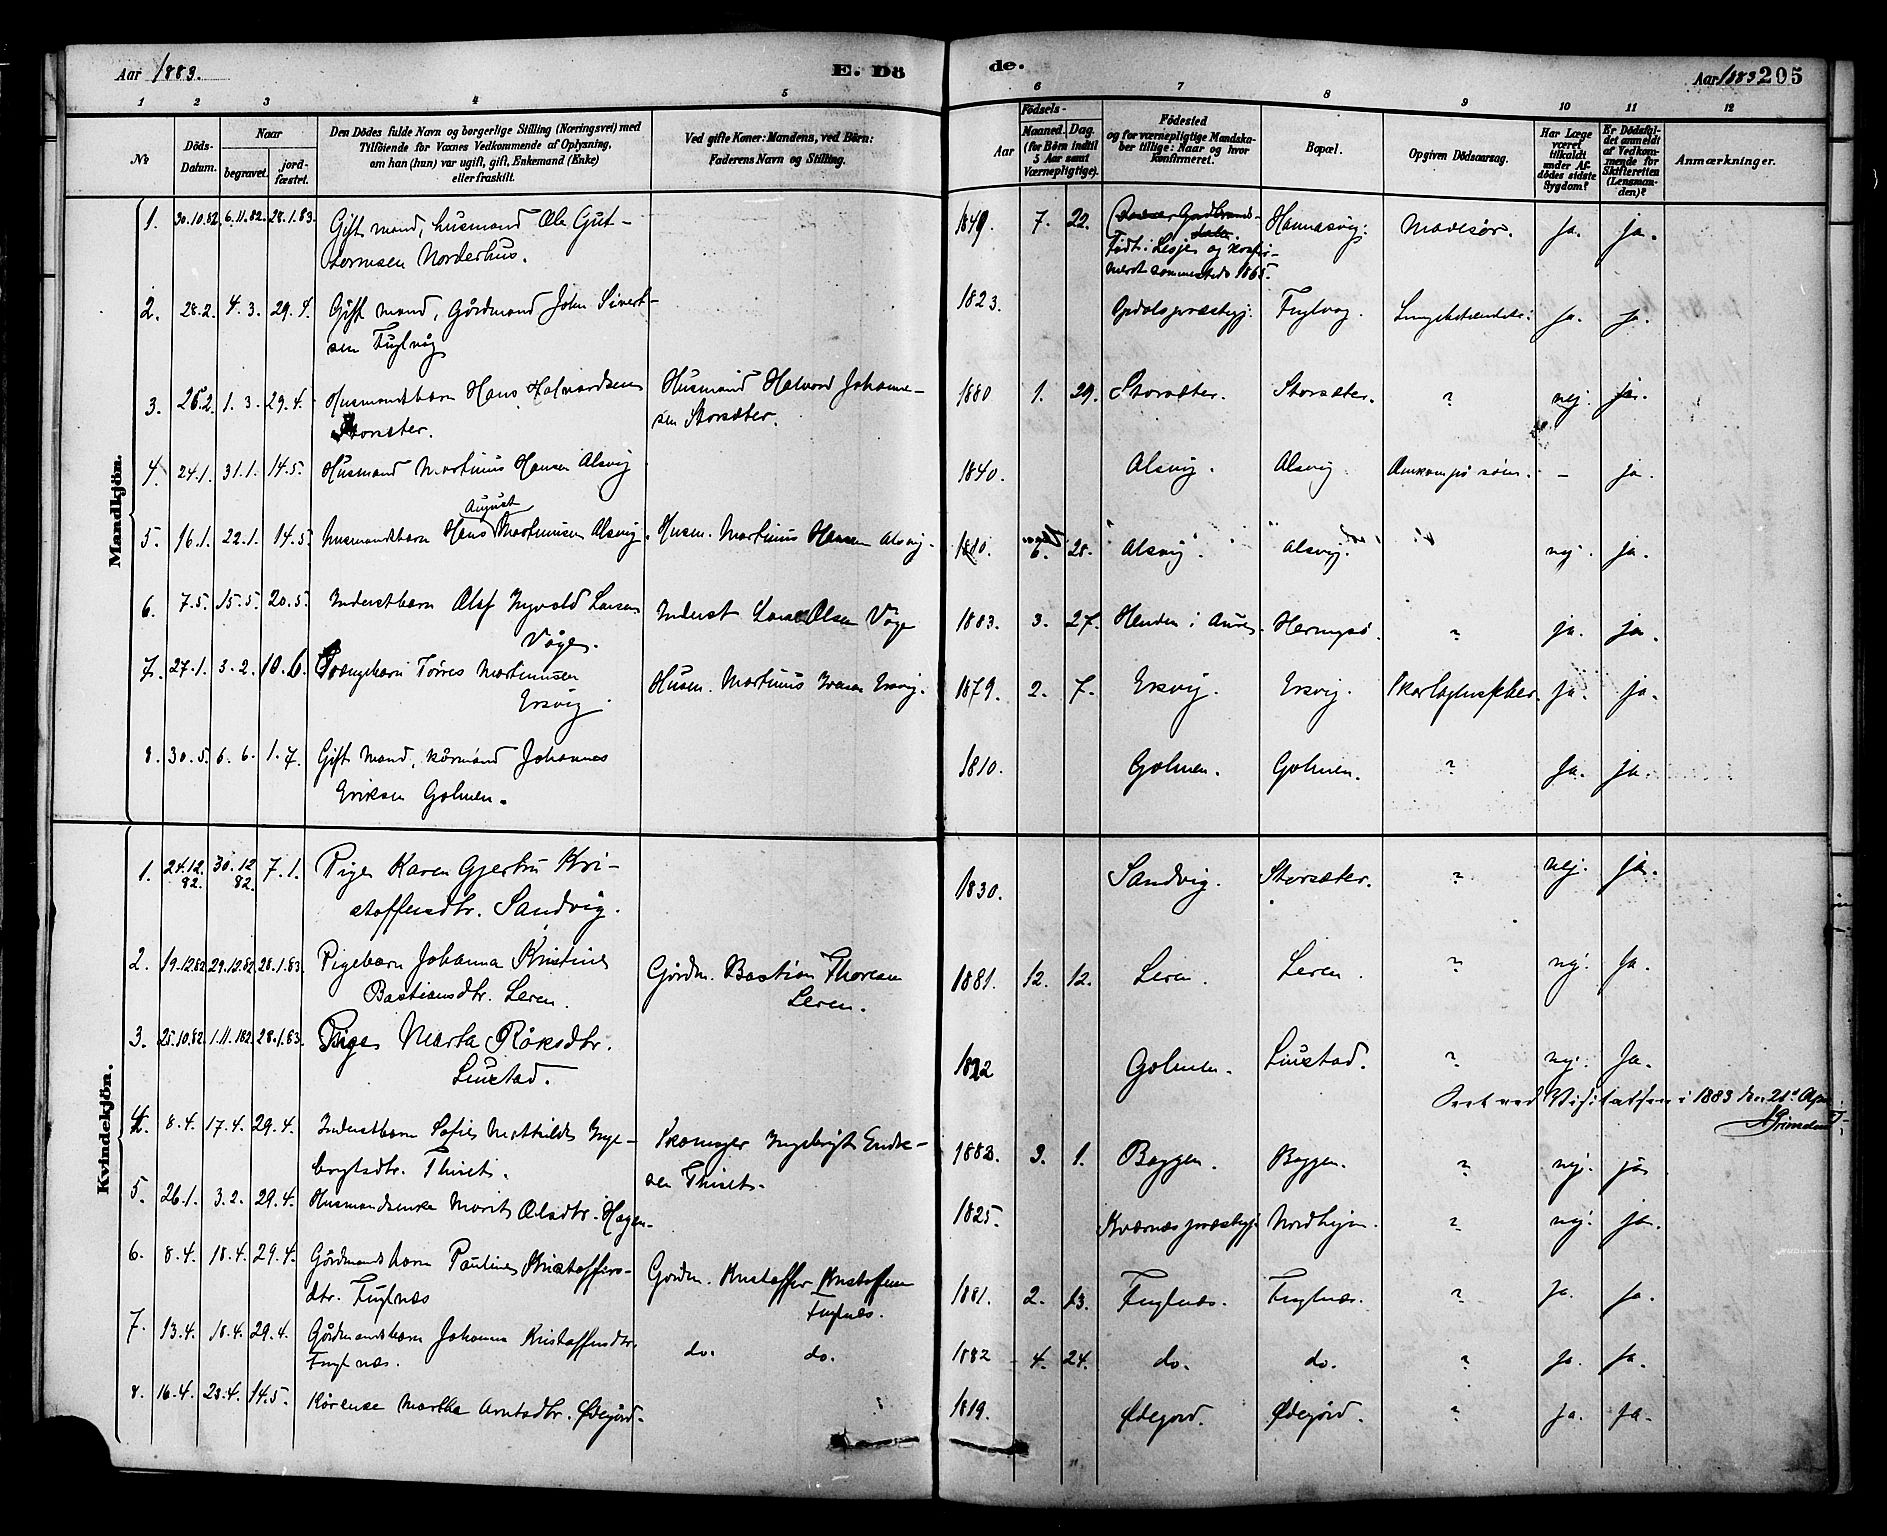 Aar 1883. E. Dö
de. Aar 1883 205
1 2 3 4 5 6 7 8 9 10 11 12
No
Döds-Datum.
Naar
begravet.
jord-fæstet.
Den Dödes fulde Navn og borgerlige Stilling (Næringsvei) med
Tilföiende for Voxnes Vedkommende af Oplysning,
om han (hun) var ugift, gift, Enkemand (Enke)
eller fraskilt.
Ved gifte Koner: Mandens, ved Börn:
Faderens Navn og Stilling.
Födsels-
Aar
Maaned. Dag.
(for Börn indtil
5 Aar samt
Værnepligtige).
Födested
og for værnepligtige Mandska-
ber tillige: Naar og hvor
konfirmeret.
Bopæl.
Opgiven Dödsaarsag.
Har Læge
været
tilkaldt
under Af-
dödes sidste
Sygdom?
Er Dödsfal-
det anmeldt
af Vedkom-
mende for
Skifteretten
(Lensman-
den)?
Anmærkninger.
Mandkjön.
1. 30.10.82. 6.11.82. 28.1.83. Gift mand, husmand Ole Gut-
tormsen Norderhus.
1849. 7. 22. Gudbrands-
dalen
Født i Lesje og konfir-
meret sammesteds 1865.
Hannesvig. Mavesår. Ja. ja.
2. 28.2. 4.3. 29.4. Gift mand, Gårdmand John Sivert-
sen Fuglvåg
1823. Opdals præstegj. Fuglvåg. Lungebetændelse. ja. ja.
3. 26.2. 1.3. 29.4. Husmandsbarn Hans Halvardsen
Storsæter.
Husmand Halvard Johanne-
sen Storsæter.
1880 1. 29. Storsæter. Storsæter. ? nej. ja.
4. 24.1. 31.1. 14.5. Husmand Martinus Hansen Alsvig
1840. Alsvig. Alsvig. Omkom på søen. – ja
5. 16.1. 22.1. 14.5. Husmandsbarn Hans August Martinusen Alsvig.
Husm. Martinus Hansen Alsvig.
1880. 6. 28. Alsvig. Alsvig. nej. ja.
6. 7.5. 15.5. 20.5. Inderstbarn Olaf Ingvald Larsen
Våge.
Inderst Lars Olsen Våge
1883. 3. 27. Henden i Aure. Heringsø. ? ja. ja.
7. 27.1. 3.2. 10.6. Drængebarn Tørres Martinusen
Ersvig.
Husm. Martinus Iversen Ersvig.
1879. 2. 7. Ersvig. Ersvig. Skarlagensfeber. ja. ja.
8. 30.5. 6.6. 1.7. Gift Mand, kårmand Johannes
Eriksen Golmen.
1810. Golmen. Golmen. ? Ja. ja.
Kvindekjön.
1. 24.12.82. 30.12.82. 7.1. Pige Karen Gjertru Kri-
stoffersdtr. Sandvig.
1830. Sandvig. Storsæter. ? nej. ja.
2. 19.12.82 29.12.82. 28.1.83. Pigebarn Johanna Kristine
Bastiansdtr. Leren.
Gårdm. Bastian Thoresen
Leren.
1881. 12. 12. Leren. Leren. ? nej. Ja.
3. 25.10.82. 1.11.182. 28.1.83. Pige Marta Råksdtr.
Liustad.
1822 Golmen. Liustad. ? nej. Ja.
Seet ved Visitatsen i 1883 den 21de Apr.
Grimelund
4. 8.4. 17.4. 29.4. Inderstbarn Sofie Mathilde Inge-
brigtsdtr. Thiset.
Skomager Ingebrigt Endre-
sen Thiset.
1883. 3. 1. Baggen. Baggen. ? nej. ja
5. 26.1. 3.2. 29.4. Husmandsenke Marit Olsdtr. Hagen.
1825. Kværnes præstegj. Nordheim. ? nej. ja.
6. 8.4. 18.4. 29.4. Gårdmandsbarn Pauline Kristoffers-
dtr. Fuglnæs
Gårdm. Kristoffer Kristoffersen
Fuglnæs.
1881. 2. 13. Fuglnæs. Fuglnæs. ? Ja. ja.
7. 13.4. 18.4. 29.4. Gårdmandsbarn Johanna Kristoffersdtr.
Fuglnæs.
do. do.
1882 4. 24. do. do. ? Ja. Ja.
8. 16.4. 23.4. 14.5. Kårenke Martha Arntsdtr. Ødegård.
1819. Ødegård. Ødegård. ? ja. Ja.